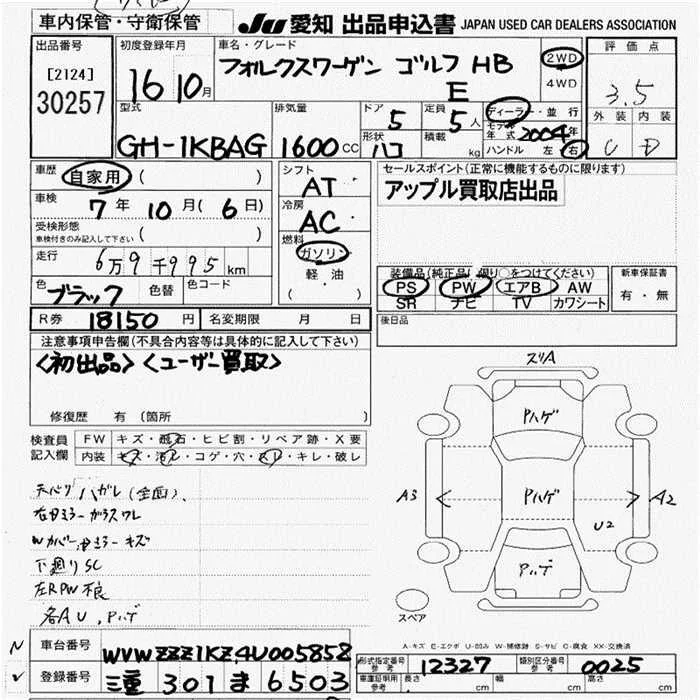 車内保管・守衛保管
JU 愛知 出品申込書 JAPAN USED CAR DEALERS ASSOCIATION
出品番号
[2124]
30257
初度登録年月
16 10月
車名・グレード
フォルクスワーゲン ゴルフ HB
E
2WD
4WD
評価点
3.5
外装 内装
C D
型式
GH-1KBAG
排気量
1600cc
ドア
5
形状
ハコ
定員
5人
積載
kg
ディーラー・並行
モデル年式 2004年
ハンドル 左・右
車歴
自家用 ( )
車検
7年 10月(6日)
受検形態
車検付きのみ記入して下さい ( )
走行
6万9千995km
色
ブラック
色替
色コード
シフト
AT
冷房
AC
燃料
ガソリン
軽・油
( )
セールスポイント(正常に機能するものに限ります)
アップル買取店出品
装備品(純正品に限り○をつけてください)
PS PW エアB AW
SR ナビ TV カワシート
新車保証書
有・無
R券 18150円
名変期限 月 日
後日品
注意事項申告欄(不具合内容等は具体的に記入して下さい)
<初出品> <ユーザー買取>
修復歴 有(箇所 )
検査員
記入欄
FW キズ・飛石・ヒビ割・リペア跡・X要
内装 キズ・汚レ・コゲ・穴・スレ・キレ・破レ
天バリハガレ(全面)、
右Dミラーガラスワレ
Wカバー、Dミラーキズ
下廻りSC
左RPW不良
各AU、Pハゲ
ズリA
Pハゲ
A3
Pハゲ
A2
U2
Pハゲ
スペア
A-キズ E-エクボ U-凹み W-補修跡 S-サビ C-腐食 XX-交換済
車台番号 WVWZZZ1KZ4U005858
登録番号 三重 301 ま 6503
型式指定番号
参考 12327
類別区分番号
参考 0025
車庫証明用
参考
長さ cm 幅 cm 高さ cm